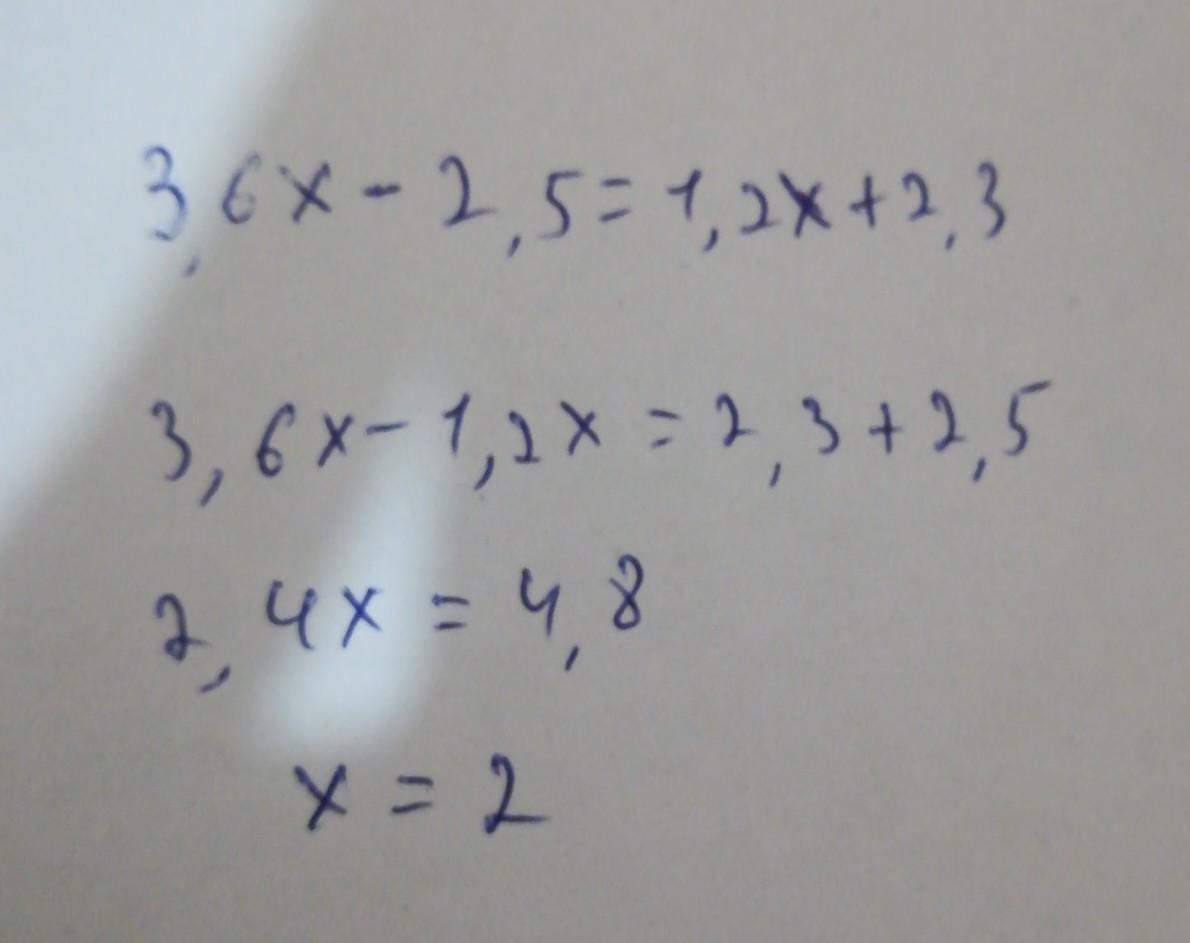 3,6x - 2,5 = 1,2x + 2,3
3,6x - 1,2x = 2,3 + 2,5
2,4x = 4,8
x = 2